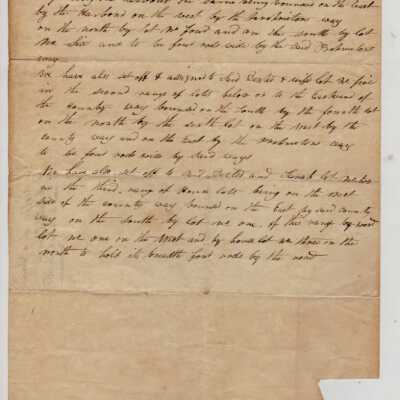 the same being bounded on the East
by the Harbour on the west by the Proprietors way
on the north by lot No four and on the south by lot
No Six and to be four rods wide by the said Proprietors
way
We have also set off & assigned to Said Dexter & wife lot No five
in the second range of lots below or to the Eastward of
the County way bounded on the South by the fourth lot
on the north by the sixth lot on the west by the
County way and on the East by the Proprietors way
to be four rods wide by said ways
We have also set off to said Dexter and lot number
in the third range of House lots being on the west
side of the County way bounded on the East by said County
way on the South by lot No one of this range by wood
lot No one on the West and by house lot No three on the
north to hold its breadth four rods by the road